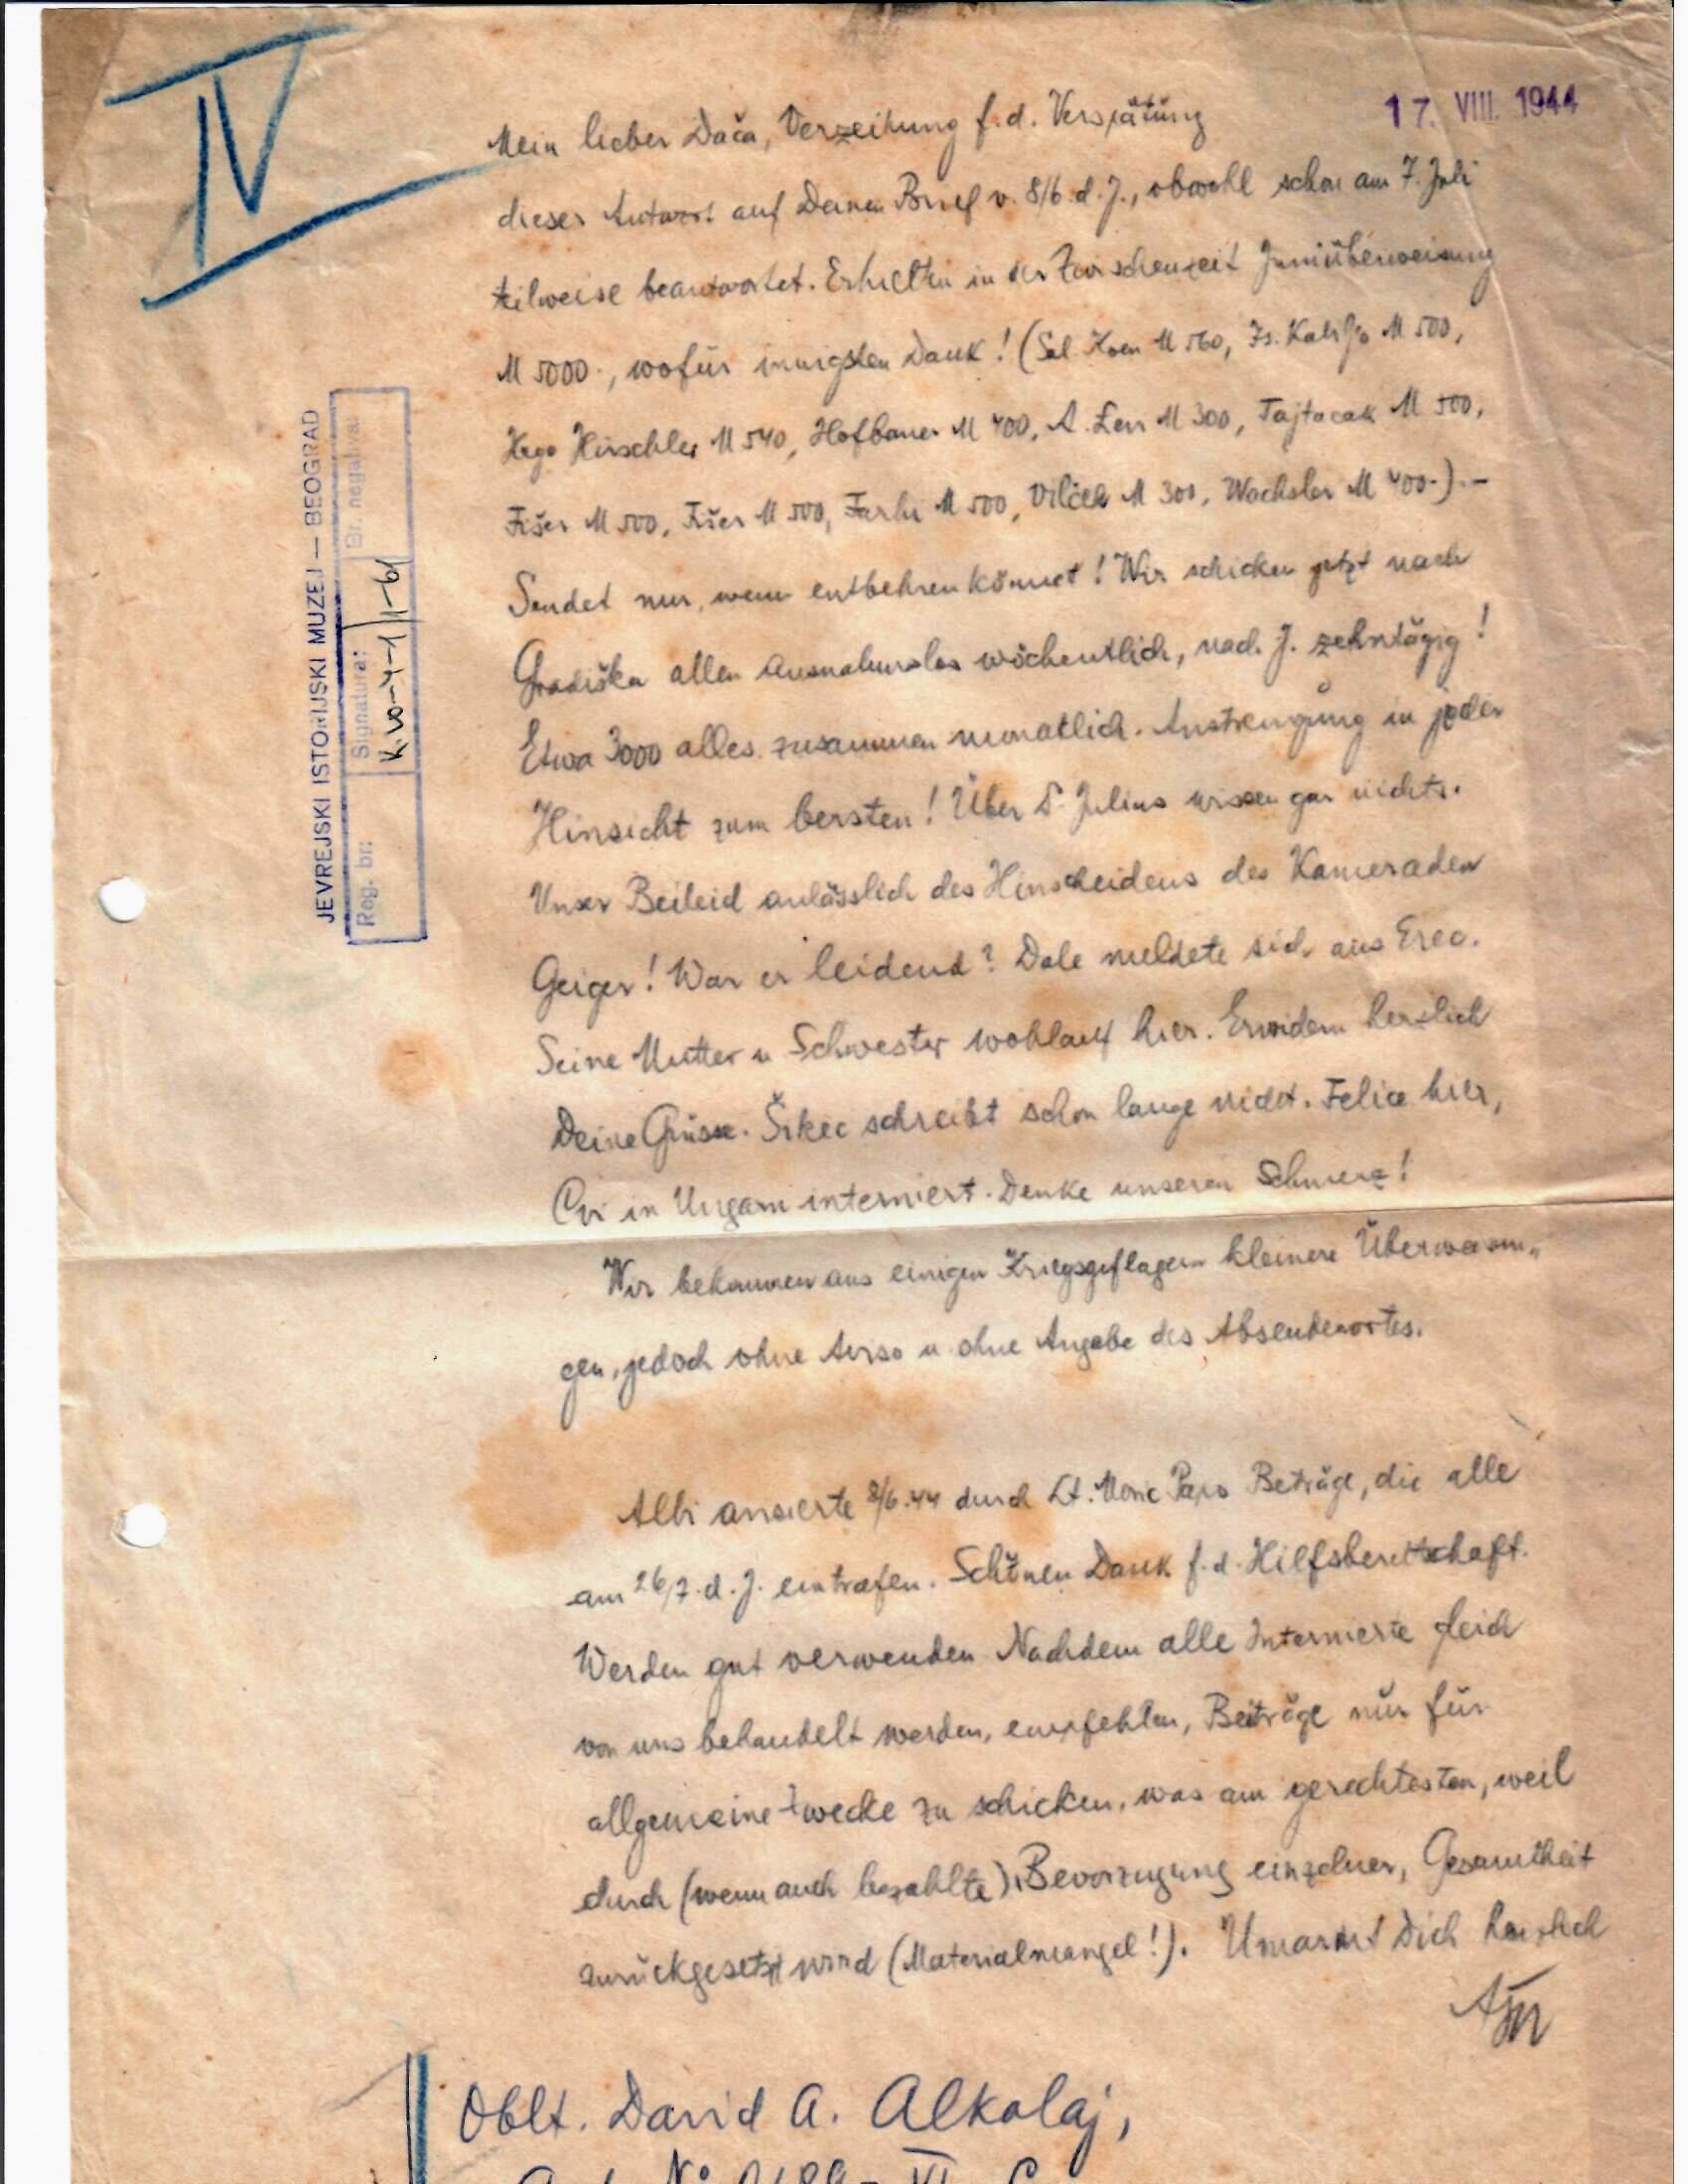 IV
17. VIII. 1944
Mein lieber Dača, Verzeihung f. d. Verspätung
dieser Antwort auf Deinen Brief v. 8/6 d. J., obwohl schon am 7. Juli
teilweise beantwortet. Erhielten in der Zwischenzeit Juniüberweisung
M 5000.-, wofür innigsten Dank! (Sal. Koen M 560, Is. Kabiljo M 500,
Hugo Hirschler M 540, Hofbauer M 400, A. M 300, Tajtacak M 500,
Fišer M 500, Fišer M 500, Farhi M 500, Vilček M 300, Wachsler M 400-).-
Sendet nur, wenn entbehren könnet! Wir schicken jetzt nach
Gradiška allen ausnahmslos wöchentlich, nach J. zehntägig!
Etwa 3000 alles zusammen monatlich. Anstrengung in jeder
Hinsicht zum bersten! Über Julius wissen gar nichts.
Unser Beileid anlässlich des Hinscheidens des Kameraden
Geiger! War er leidend? Dale meldete sich aus Erec.
Seine Mutter u Schwester wohlauf hier. Erwidern herzlich
Deine Grüsse. Šrkec schreibt schon lange nicht. Felice hier,
Cvi in Ungarn interniert. Denke unseren Schmerz!
Wir bekommen aus einigen Kriegsgeflagern kleinere Überweisun„
gen, jedoch ohne Aviso u ohne Angabe des Absenderortes.
Albi avisierte 8/6.44 durch Lt. Moric Papo Beträge, die alle
am 26/7. d. J. eintrafen. Schönen Dank f. d. Hilfsbereitschaft.
Werden gut verwenden Nachdem alle Internierte gleich
von uns behandelt werden, empfehlen, Beiträge nur für
allgemeine Zwecke zu schicken, was am gerechtesten, weil
durch (wenn auch bezahlte) Bevorzugung einzelner, Gesamtheit
zurückgesetzt wird (Materialmangel!). Umarmt Dich herzlich
Oblt. David A. Alkalaj,
JEVREJSKI ISTORIJSKI MUZEJ — BEOGRAD
Reg. br:
Signatura:
Br. negativa: